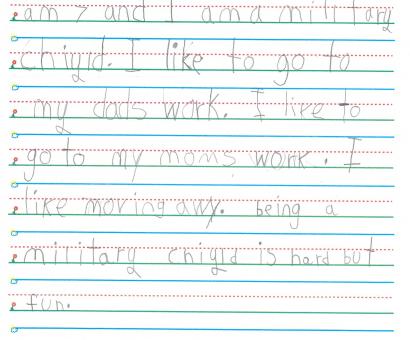 am 7 and I am a military
chiyld. I like to go to
my dads work. I like to
go to my moms work. I
like moving awy. being a
military chiyld is hard but
fun.